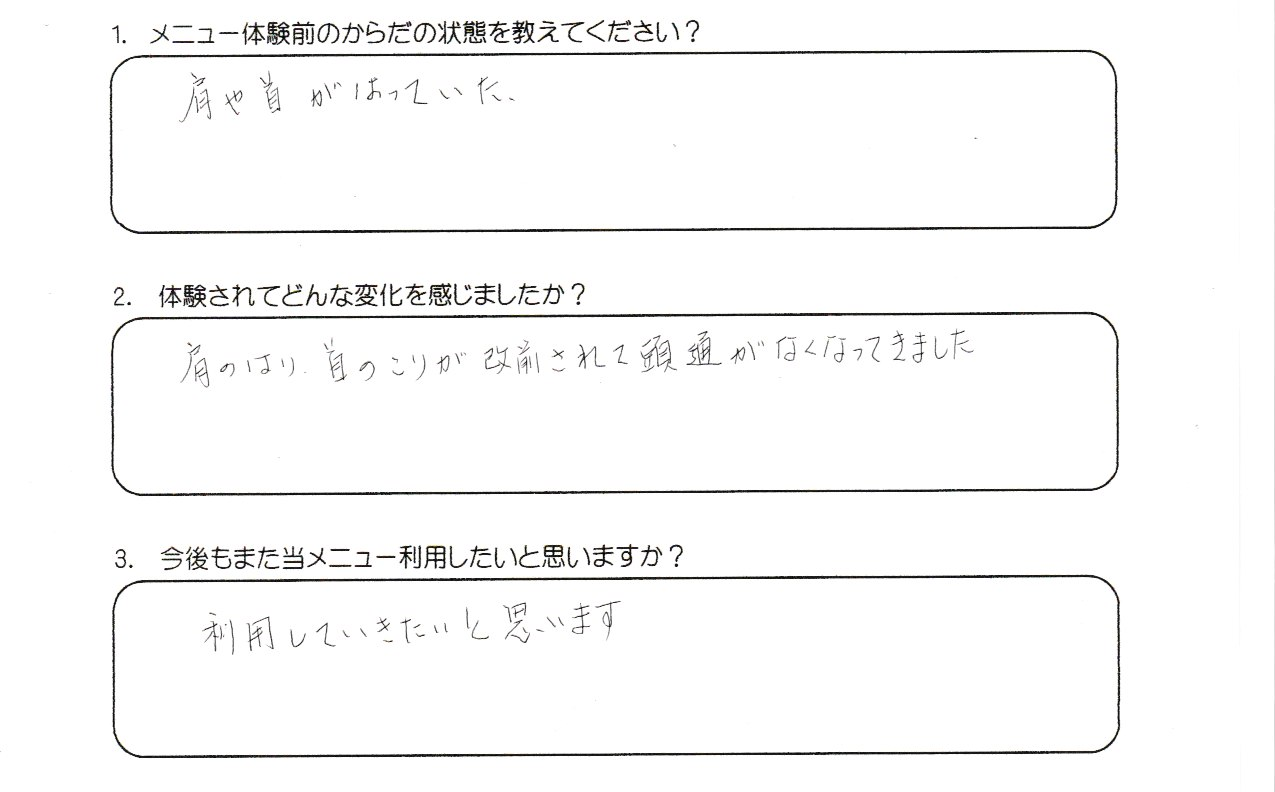 1. メニュー体験前のからだの状態を教えてください？
肩や首がはっていた、
2. 体験されてどんな変化を感じましたか？
肩のはり、首のこりが改前されて頭通がなくなってきました
3. 今後もまた当メニュー利用したいと思いますか？
利用していきたいと思います